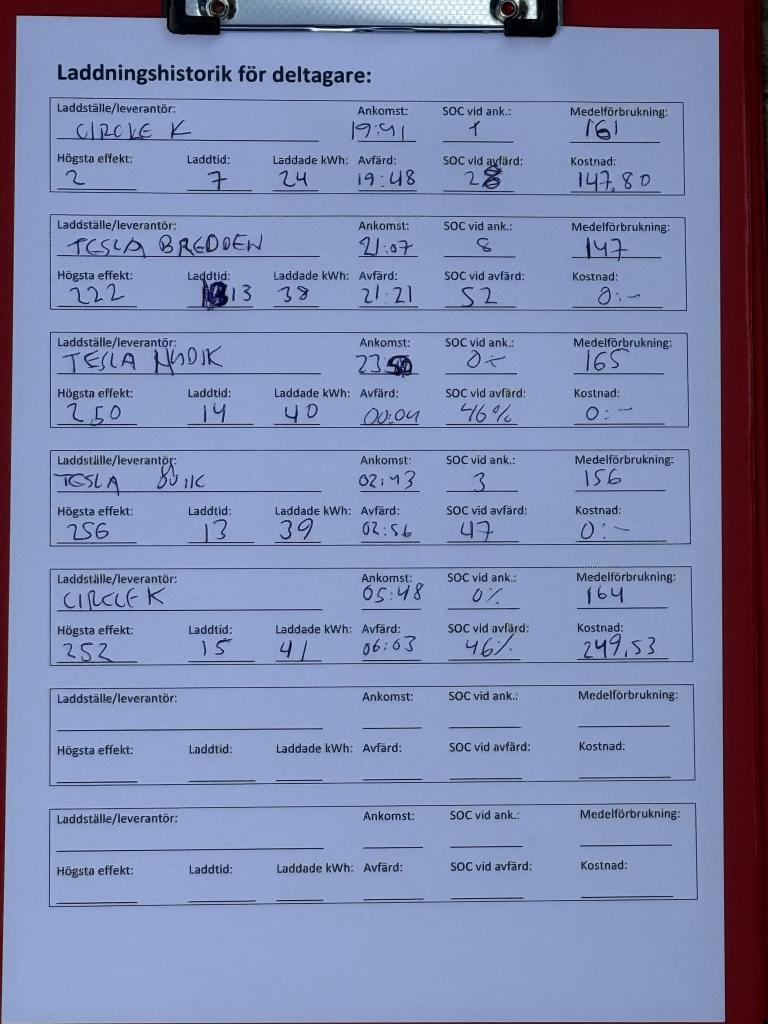 Laddningshistorik för deltagare:
Laddställe/leverantör: Ankomst: SOC vid ank.: Medelförbrukning:
CIRCLE K 19:41 1 161
Högsta effekt: Laddtid: Laddade kWh: Avfärd: SOC vid avfärd: Kostnad:
2 7 24 19:48 28 147,80
Laddställe/leverantör: Ankomst: SOC vid ank.: Medelförbrukning:
TESLA BREDDEN 21:07 8 147
Högsta effekt: Laddtid: Laddade kWh: Avfärd: SOC vid avfärd: Kostnad:
222 13 38 21:21 52 0:-
Laddställe/leverantör: Ankomst: SOC vid ank.: Medelförbrukning:
TESLA 23:50 165
Högsta effekt: Laddtid: Laddade kWh: Avfärd: SOC vid avfärd: Kostnad:
250 14 40 00:04 46% 0:-
Laddställe/leverantör: Ankomst: SOC vid ank.: Medelförbrukning:
TESLA 02:43 3 156
Högsta effekt: Laddtid: Laddade kWh: Avfärd: SOC vid avfärd: Kostnad:
256 13 39 02:56 47 0:-
Laddställe/leverantör: Ankomst: SOC vid ank.: Medelförbrukning:
CIRCLE K 05:48 0% 164
Högsta effekt: Laddtid: Laddade kWh: Avfärd: SOC vid avfärd: Kostnad:
252 15 41 06:03 46% 249,53
Laddställe/leverantör: Ankomst: SOC vid ank.: Medelförbrukning:
Högsta effekt: Laddtid: Laddade kWh: Avfärd: SOC vid avfärd: Kostnad:
Laddställe/leverantör: Ankomst: SOC vid ank.: Medelförbrukning:
Högsta effekt: Laddtid: Laddade kWh: Avfärd: SOC vid avfärd: Kostnad: